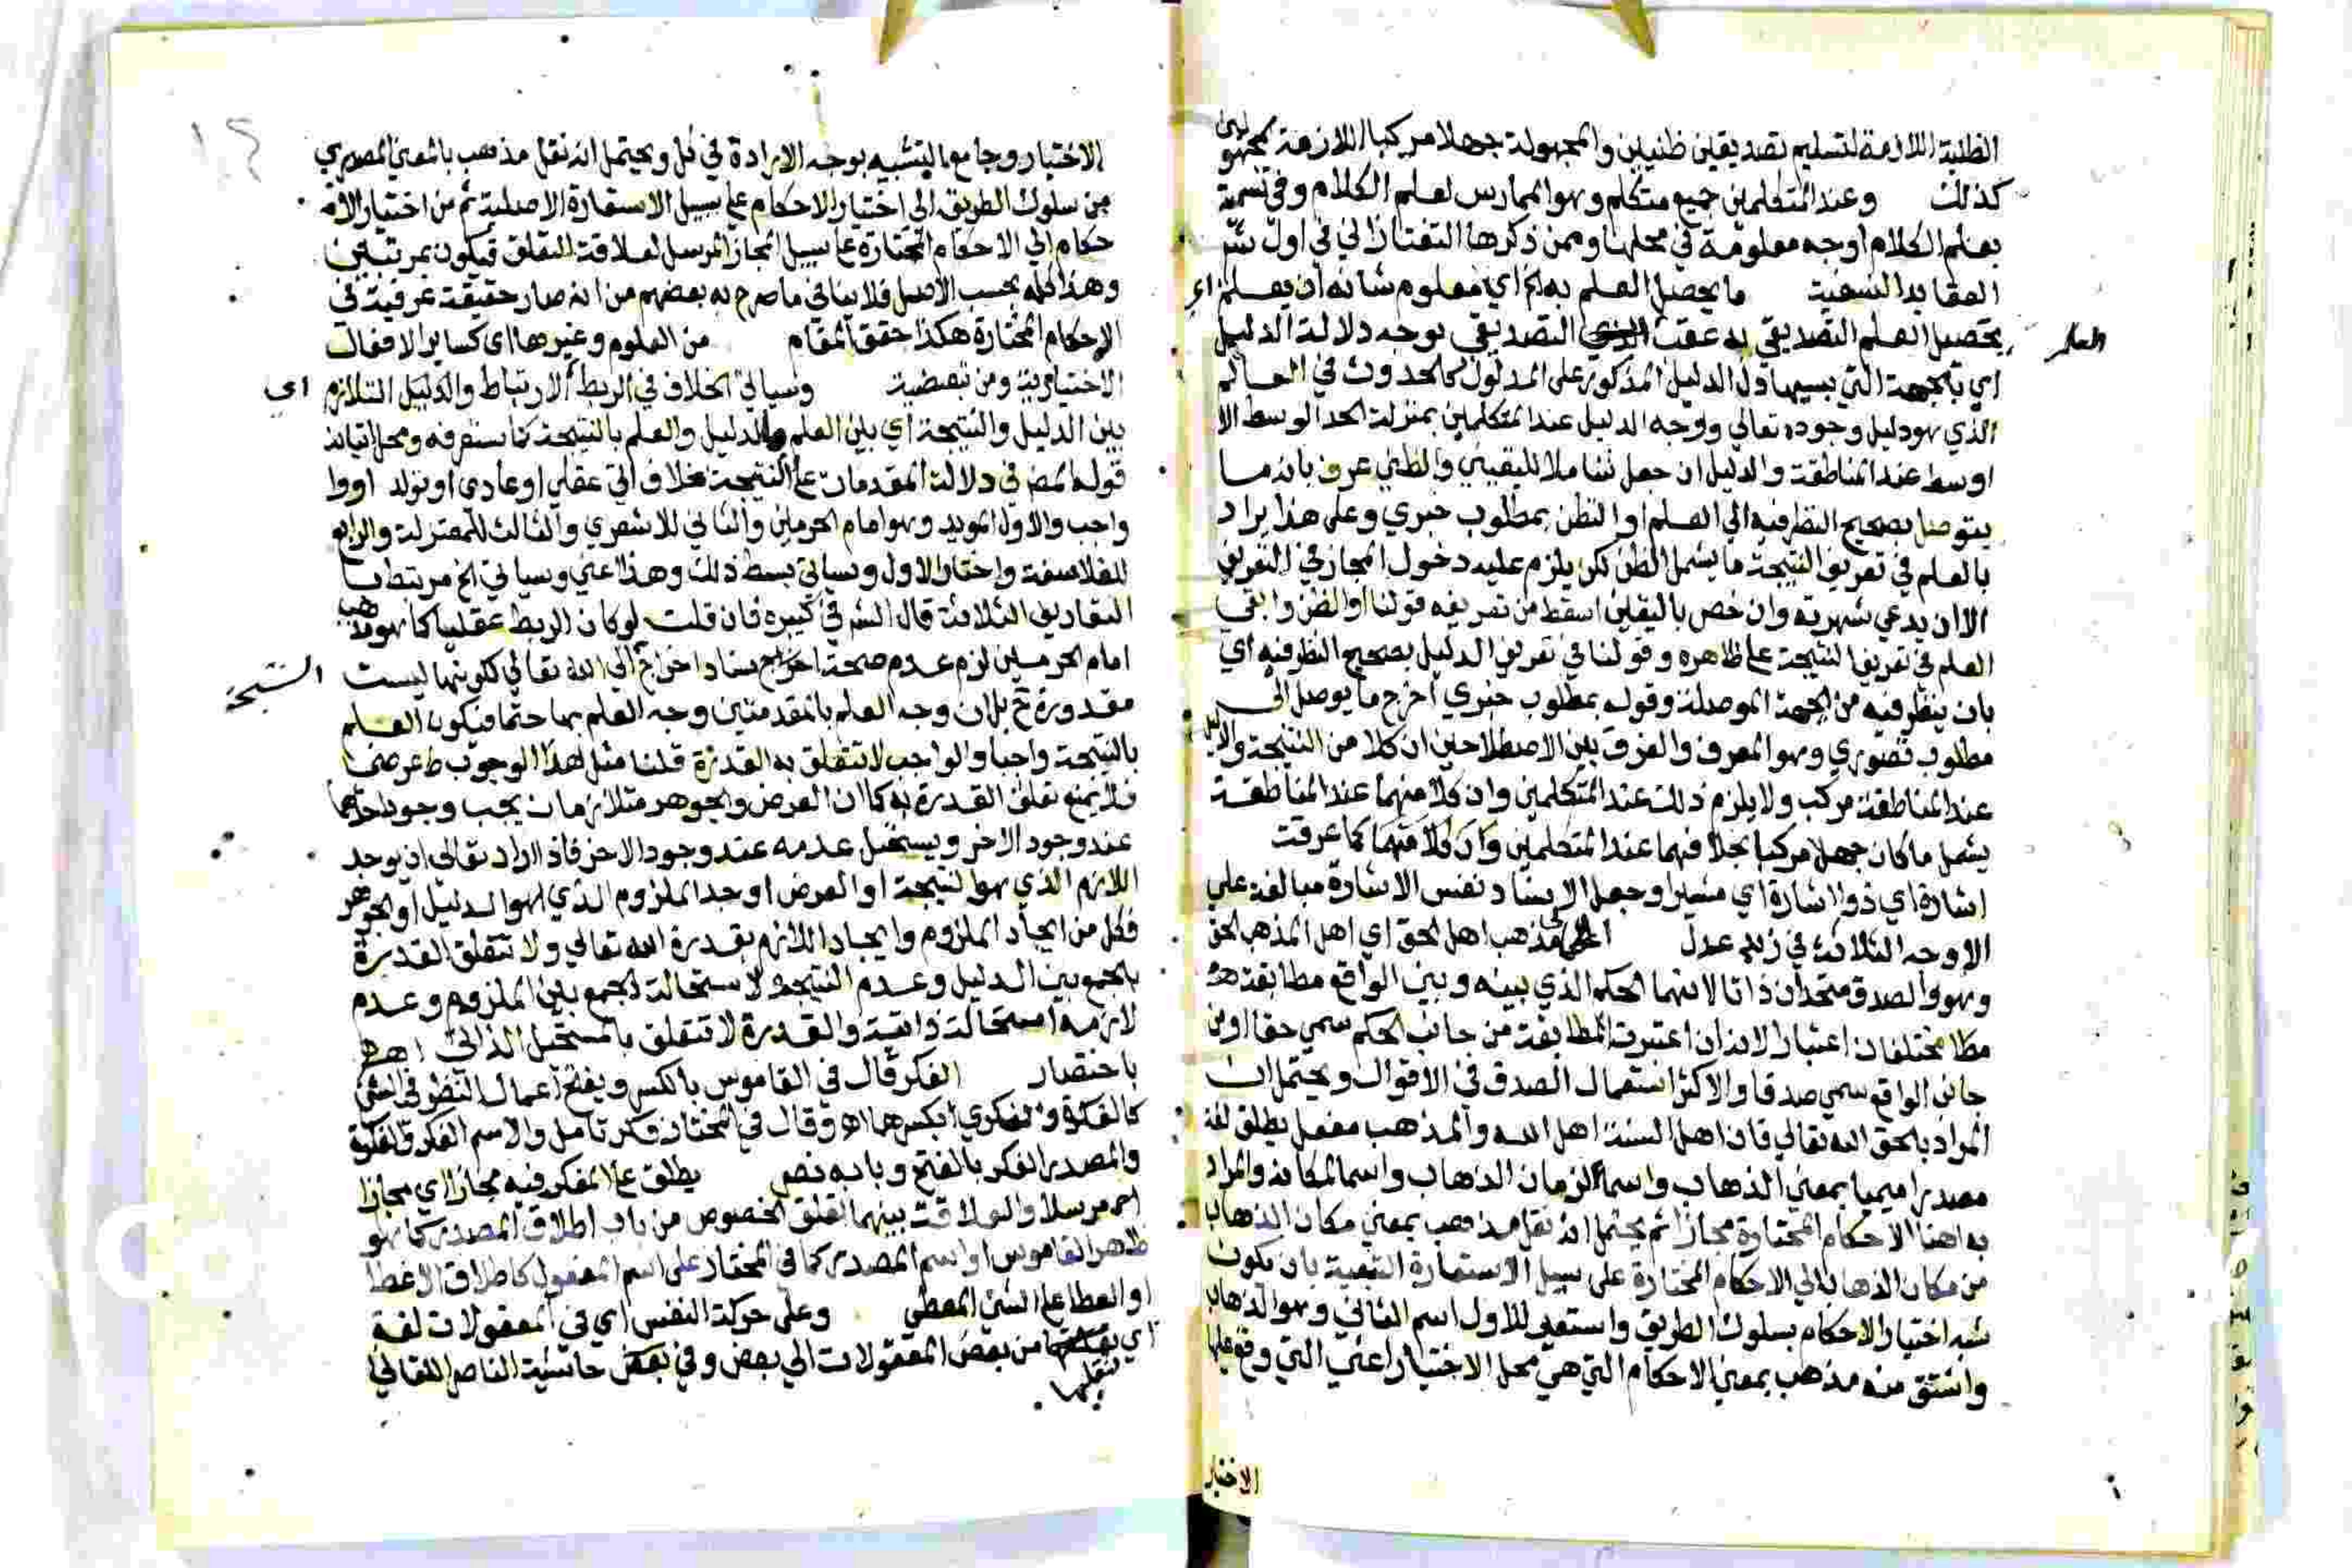 الظنية اللازمة لتسليم تصديقين ظنيين والمجهولة جهلا مركبا اللازمة لمجهولين
كذلك وعند المتكلمين جميع متكلم وهو الممارس لعلم الكلام وفي تسمية
بعلم الكلام اوجه معلومة في محلها وممن ذكرها التفتازاني في اول شر
العقايد النسفية ما يحصل العلم به الخ اي معلوم شانه ان يعلم اي
يحصل العلم التصديقي به عقب التصديقي بوجه دلالة الدليل
العلم
اي بالجهة التي بسببها دل الدليل المذكور على المدلول كالحدوث في العالم
الذي هو دليل وجوده تعالي ووجه الدليل عند المتكلمين بمنزلة الحد الوسط الا
اوسط عند المناطقة والدليل ان جعل شاملا لليقيني والظني عرف بانه ما
يتوصل بصحيح النظر فيه الي العلم او الظن بمطلوب خبري وعلى هذا يراد
بالعلم في تعريف النتيجة ما يشمل الظن لكن يلزم عليه دخول المجاز في التعريف
الا ان يدعي شهرته وان خص باليقين اسقط من تعريفه قولنا او الظن وابقي
العلم في تعريف النتيجة على ظاهره وقولنا في تعريف الدليل بصحيح النظر فيه اي
بان ينظر فيه من الجهة الموصلة وقوله بمطلوب خبري اخرج ما يوصل الى
مطلوب تصوري وهو المعرف والفرق بين الاصطلاحين ان كلا من النتيجة والدليل
عند المناطقة مركب ولا يلزم ذلك عند المتكلمين وان كلا منهما عند المناطقة
يشمل ما كان جهلا مركبا بخلافهما عند المتكلمين وان كلا منهما كما عرفت
اشارة اي ذو اشارة اي مشيرا وجعل الاسناد نفس الاشارة مبالغة علي
الاوجه الثلاثة في زيد عدل الي مذهب اهل الحق اي اهل المذهب الحق
وهو والصدق متحدان ذاتا لانهما الحكم الذي بينه وبين الواقع مطابقة
مختلفان اعتبارا لانه ان اعتبرت المطابقة من جانب الحكم سمي حقا او من
جانب الواقع سمي صدقا والاكثر استعمال الصدق في الاقوال ويحتمل ان
المراد بالحق الله تعالي فان اهل السنة اهل الله والمذهب مفعل يطلق لغة
مصدرا ميميا بمعني الذهاب واسما لزمان الذهاب واسما لمكانه والمراد
به هنا الاحكام المختارة مجازا ثم يحتمل انه نقل مذهب بمعني مكان الذهاب
من مكان الذهاب الي الاحكام المختارة على سبيل الاستعارة التبعية بان يكون
شبه اختيار الاحكام بسلوك الطريق واستعير للاول اسم الثاني وهو الذهاب
واشتق منه مذهب بمعني الاحكام التي هي محل الاختيار اعني التي وقع عليها
الاختيار
الاختيار وجامع التشبيه بوجه الارادة في كل ويحتمل انه نقل مذهب بالمعني المصدري
من سلوك الطريق الى اختيار الاحكام على سبيل الاستعارة الاصلية ثم من اختيار الاحـ
حكام الي الاحكام المختارة على سبيل المجاز المرسل لعلاقة التعلق فيكون بمرتبتين
وهذا كله بحسب الاصل فلا ينافي ما صرح به بعضهم من انه صار حقيقة عرفية في
الاحكام المختارة هكذا حقق المقام من العلوم وغيرها اي كساير الافعال
الاختيارية ومن تبعيضية وسياتي الخلاف في الربط الارتباط والدليل التلازم اي
بين الدليل والنتيجة اي بين العلم بالدليل والعلم بالنتيجة كما ستعرفه ومحل اتيانه
قوله المصنف في دلالة المقدمات على النتيجة خلاف اتي عقلي او عادي او تولد او وا
واجب والاول المويد وهو امام الحرمين والثاني للاشعري والثالث للمعتزلة والرابع
للفلاسفة واختار الاول وسياتي بسط ذلك وهذا اعني وسياتي الخ مرتبط
التعاريف الثلاثة قال الش في كبيره فان قلت لو كان الربط عقليا كما هو مذهب
امام الحرمين لزم عدم صحة اسناد اخراج الي الله تعالي لكونها ليست
النتيجة
مقدورة ح بل ان وجد العلم بالمقدمتين وجد العلم بها حتما فيكون العلم
بالنتيجة واجبا والواجب لا تتعلق به القدرة قلنا مثل هذا الوجوب عرضي
فلا يمنع تعلق القدرة به كما ان العرض والجوهر متلازمان يجب وجود احدهما
عند وجود الاخر ويستحيل عدمه عند وجود الاخر فاذا اراد تعالى ان يوجد
اللازم الذي هو النتيجة او العرض اوجد الملزوم الذي هو الدليل او الجوهر
فكل من ايجاد الملزوم وايجاد اللازم بقدرة الله تعالي ولا تتعلق القدرة
بالجمع بين الدليل وعدم النتيجة لاستحالة الجمع بين الملزوم وعدم
لازمه استحالة ذاتية والقدرة لا تتعلق بالمستحيل الذاتي اهـ
باختصار الفكر قال في القاموس بالكسر ويفتح اعمال النظر في الشي
كالفكرة والفكري بكسرهما اهـ وقال في المختار فكر تامل والاسم الفكر والفكرة
والمصدر الفكر بالفتح وبابه نصر يطلق على المفكر فيه مجازا اي مجازا
مرسلا والعلاقة بينهما التعلق الخصوص من باب اطلاق المصدر كما هو
ظاهر القاموس او اسم المصدر كما في المختار على اسم المفعول كاطلاق الاعطا
او العطا على الشي المعطى وعلى حركة النفس اي في المعقولات لغة
اي تنقلها من بعض المعقولات الي بعض وفي بعض حاشية الناصر اللقاني